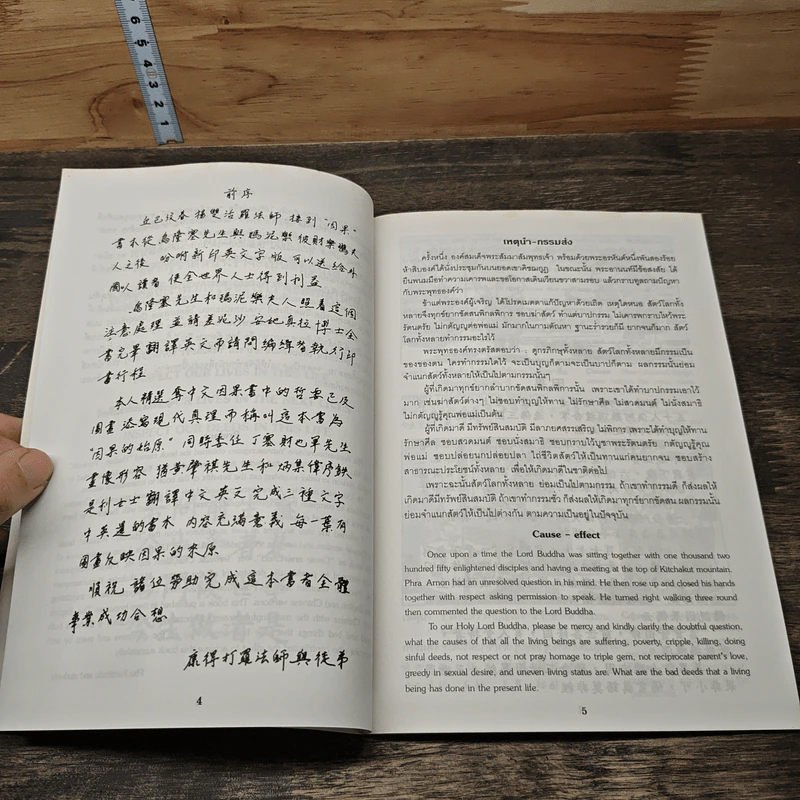 6 5 4 3 2 1
前序
丘巳汶春 楊雙治羅法師 接到 "因果"
書本從烏隆塞先生與瑪泥樂彼財樂鴻夫
人之後 吩咐新印英文字版 可以送給外
國人讀者 使全世界人士得到利益
烏隆塞先生和瑪泥樂夫人照看這個
注意處理 並請差泥沙 安地真拉博士全
書完畢翻譯英文 而請問編緝者執行印
書行程
本人精選奪中文因果書中的哲要已及
圖畫 添寫現代真理而稱叫這本書為
"因果的始原" 同時委任 丁塞財也軍先生
畫像形容 猶黃肇祺先生和炳某偉序鉄
是利士士翻譯中文英文完成三種文字
中英暹的書本 內容充滿意義 每一葉有
圖畫反映因果的來原
順祝 諸位勞助完成這本書者全體
事業成功合想
康得打羅法師與徒弟
4
เหตุนำ-กรรมส่ง
ครั้งหนึ่ง องค์สมเด็จพระสัมมาสัมพุทธเจ้า พร้อมด้วยพระอรหันต์หนึ่งพันสองร้อย
ห้าสิบองค์ได้นั่งประชุมกันบนยอดเขาคิชฌกูฏ ในขณะนั้น พระอานนท์มีข้อสงสัย ได้
ยืนพนมมือทำความเคารพและขอโอกาสเดินเวียนขวาสามรอบ แล้วกราบทูลถามปัญหา
กับพระพุทธองค์ว่า
ข้าแต่พระองค์ผู้เจริญ ได้โปรดเมตตาแก้ปัญหาด้วยเถิด เหตุใดหนอ สัตว์โลกทั้ง
หลายจึงทุกข์ยากขัดสนพิกลพิการ ชอบฆ่าสัตว์ ทำแต่บาปกรรม ไม่เคารพกราบไหว้พระ
รัตนตรัย ไม่กตัญญูต่อพ่อแม่ มักมากในกามตัณหา ฐานะร่ำรวยก็มี ยากจนก็มาก สัตว์
โลกทั้งหลายทำกรรมอะไรไว้
พระพุทธองค์ทรงตรัสตอบว่า ดูกรภิกษุทั้งหลาย สัตว์โลกทั้งหลายมีกรรมเป็น
ของของตน ใครทำกรรมใดไว้ จะเป็นบุญก็ตามจะเป็นบาปก็ตาม ผลกรรมนั้นย่อม
จำแนกสัตว์ทั้งหลายให้เป็นไปตามกรรมนั้นๆ
ผู้ที่เกิดมาทุกข์ยากลำบากขัดสนพิกลพิการนั้น เพราะเขาได้ทำบาปกรรมเอาไว้
มาก เช่นฆ่าสัตว์ต่างๆ ไม่ชอบทำบุญให้ทาน ไม่รักษาศีล ไม่สวดมนต์ ไม่นั่งสมาธิ
ไม่กตัญญูรู้คุณพ่อแม่เป็นต้น
ผู้ที่เกิดมาดี มีทรัพย์สินสมบัติ มีลาภยศสรรเสริญ ไม่พิการ เพราะได้ทำบุญให้ทาน
รักษาศีล ชอบสวดมนต์ ชอบนั่งสมาธิ ชอบกราบไว้บูชาพระรัตนตรัย กตัญญูรู้คุณ
พ่อแม่ ชอบปล่อยนกปล่อยปลา ไถ่ชีวิตสัตว์ให้เป็นทานแก่คนยากจน ชอบสร้าง
สาธารณะประโยชน์ทั้งหลาย เพื่อให้เกิดมาดีในชาติต่อไป
เพราะฉะนั้นสัตว์โลกทั้งหลาย ย่อมเป็นไปตามกรรม ถ้าเขาทำกรรมดี ก็ส่งผลให้
เกิดมาดีมีทรัพย์สินสมบัติ ถ้าเขาทำกรรมชั่ว ก็ส่งผลให้เกิดมาทุกข์ยากขัดสน ผลกรรมนั้น
ย่อมจำแนกสัตว์ให้เป็นไปต่างกัน ตามความเป็นอยู่ในปัจจุบัน
Cause - effect
Once upon a time the Lord Buddha was sitting together with one thousand two
hundred fifty enlightened disciples and having a meeting at the top of Kitchakut mountain.
Phra. Arnon had an unresolved question in his mind. He then rose up and closed his hands
together with respect asking permission to speak. He turned right walking three round
then commented the question to the Lord Buddha.
To our Holy Lord Buddha, please be mercy and kindly clarify the doubtful question,
what the causes of that all the living beings are suffering, poverty, cripple, killing, doing
sinful deeds, not respect or not pray homage to triple gem, not reciprocate parent's love,
greedy in sexual desire, and uneven living status are. What are the bad deeds that a living
being has done in the present life.
5